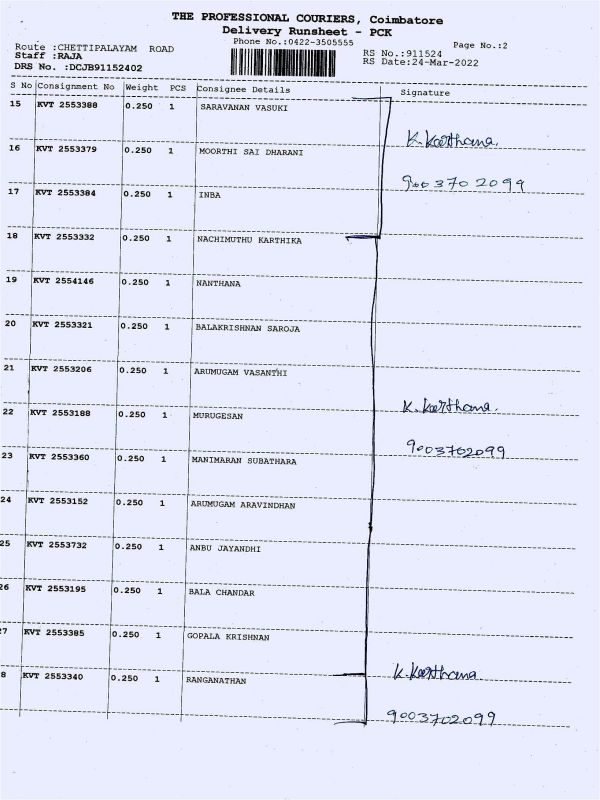 THE PROFESSIONAL COURIERS, Coimbatore
Delivery Runsheet - PCK
Phone No.:0422-3505555
Page No.:2
Route :CHETTIPALAYAM ROAD
Staff :RAJA
DRS No. :DCJB91152402
RS No.:911524
RS Date:24-Mar-2022
S No Consignment No Weight PCS Consignee Details Signature
15 KVT 2553388 0.250 1 SARAVANAN VASUKI
K. Karthana.
16 KVT 2553379 0.250 1 MOORTHI SAI DHARANI
9003702099
17 KVT 2553384 0.250 1 INBA
18 KVT 2553332 0.250 1 NACHIMUTHU KARTHIKA
19 KVT 2554146 0.250 1 NANTHANA
20 KVT 2553321 0.250 1 BALAKRISHNAN SAROJA
21 KVT 2553206 0.250 1 ARUMUGAM VASANTHI
K. Karthana.
22 KVT 2553188 0.250 1 MURUGESAN
9003702099
23 KVT 2553360 0.250 1 MANIMARAN SUBATHARA
24 KVT 2553152 0.250 1 ARUMUGAM ARAVINDHAN
25 KVT 2553732 0.250 1 ANBU JAYANDHI
26 KVT 2553195 0.250 1 BALA CHANDAR
27 KVT 2553385 0.250 1 GOPALA KRISHNAN
8 KVT 2553340 0.250 1 RANGANATHAN
K. Karthana
9003702099